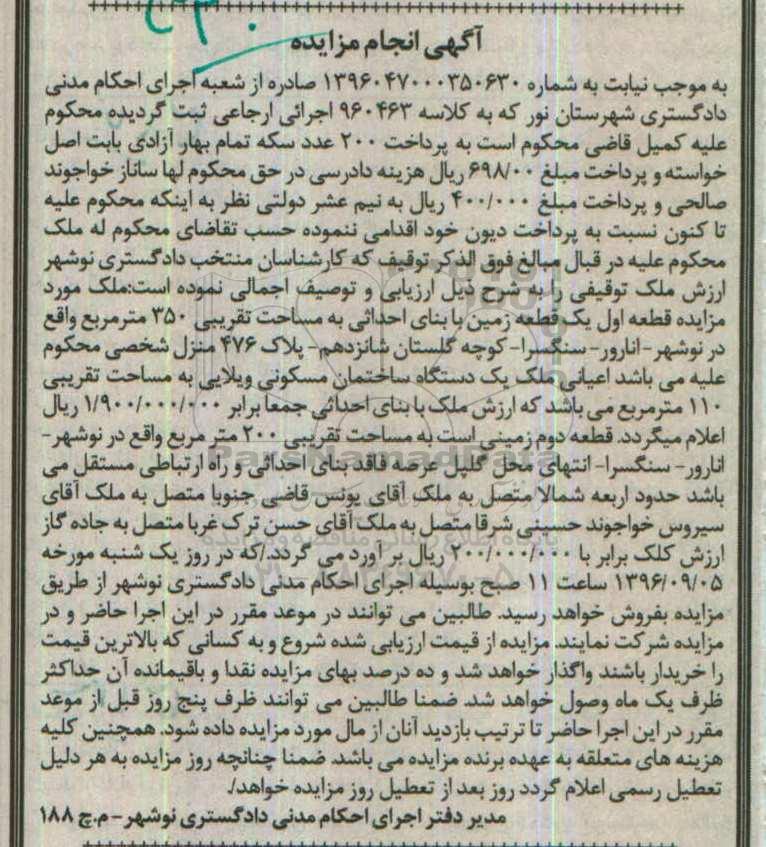 آگهی انجام مزایده
به موجب نیابت به شماره ۱۳۹۶۰۴۷۰۰۰۳۵۰۶۳۰ صادره از شعبه اجرای احکام مدنی
دادگستری شهرستان نور که به کلاسه ۹۶۰۴۶۳ اجرائی ارجاعی ثبت گردیده محکوم
علیه کمیل قاضی محکوم است به پرداخت ۲۰۰ عدد سکه تمام بهار آزادی بابت اصل
خواسته و پرداخت مبلغ ۶۹۸/۰۰ ریال هزینه دادرسی در حق محکوم لها ساناز خواجوند
صالحی و پرداخت مبلغ ۴۰۰/۰۰۰ ریال به نیم عشر دولتی نظر به اینکه محکوم علیه
تا کنون نسبت به پرداخت دیون خود اقدامی ننموده حسب تقاضای محکوم له ملک
محکوم علیه در قبال مبالغ فوق الذکر توقیف که کارشناسان منتخب دادگستری نوشهر
ارزش ملک توقیفی را به شرح ذیل ارزیابی و توصیف اجمالی نموده است:ملک مورد
مزایده قطعه اول یک قطعه زمین با بنای احداثی به مساحت تقریبی ۳۵۰ مترمربع واقع
در نوشهر-انارور- سنگسرا- کوچه گلستان شانزدهم- پلاک ۴۷۶ منزل شخصی محکوم
علیه می باشد اعیانی ملک یک دستگاه ساختمان مسکونی ویلایی به مساحت تقریبی
۱۱۰ مترمربع می باشد که ارزش ملک با بنای احداثی جمعا برابر ۱/۹۰۰/۰۰۰/۰۰۰ ریال
اعلام میگردد. قطعه دوم زمینی است به مساحت تقریبی ۲۰۰ متر مربع واقع در نوشهر-
انارور- سنگسرا- انتهای محل گلپل عرصه فاقد بنای احداثی و راه ارتباطی مستقل می
باشد حدود اربعه شمالا متصل به ملک آقای یونس قاضی جنوبا متصل به ملک آقای
سیروس خواجوند حسینی شرقا متصل به ملک آقای حسن ترک غربا متصل به جاده گاز
ارزش کلک برابر با ۲۰۰/۰۰۰/۰۰۰ ریال بر آورد می گردد./که در روز یک شنبه مورخه
۱۳۹۶/۰۹/۰۵ ساعت ۱۱ صبح بوسیله اجرای احکام مدنی دادگستری نوشهر از طریق
مزایده بفروش خواهد رسید. طالبین می توانند در موعد مقرر در این اجرا حاضر و در
مزایده شرکت نمایند. مزایده از قیمت ارزیابی شده شروع و به کسانی که بالاترین قیمت
را خریدار باشند واگذار خواهد شد و ده درصد بهای مزایده نقدا و باقیمانده آن حداکثر
ظرف یک ماه وصول خواهد شد. ضمنا طالبین می توانند ظرف پنج روز قبل از موعد
مقرر در این اجرا حاضر تا ترتیب بازدید آنان از مال مورد مزایده داده شود. همچنین کلیه
هزینه های متعلقه به عهده برنده مزایده می باشد. ضمنا چنانچه روز مزایده به هر دلیل
تعطیل رسمی اعلام گردد روز بعد از تعطیل روز مزایده خواهد/.
مدیر دفتر اجرای احکام مدنی دادگستری نوشهر - م.چ ۱۸۸
ParsNamadData